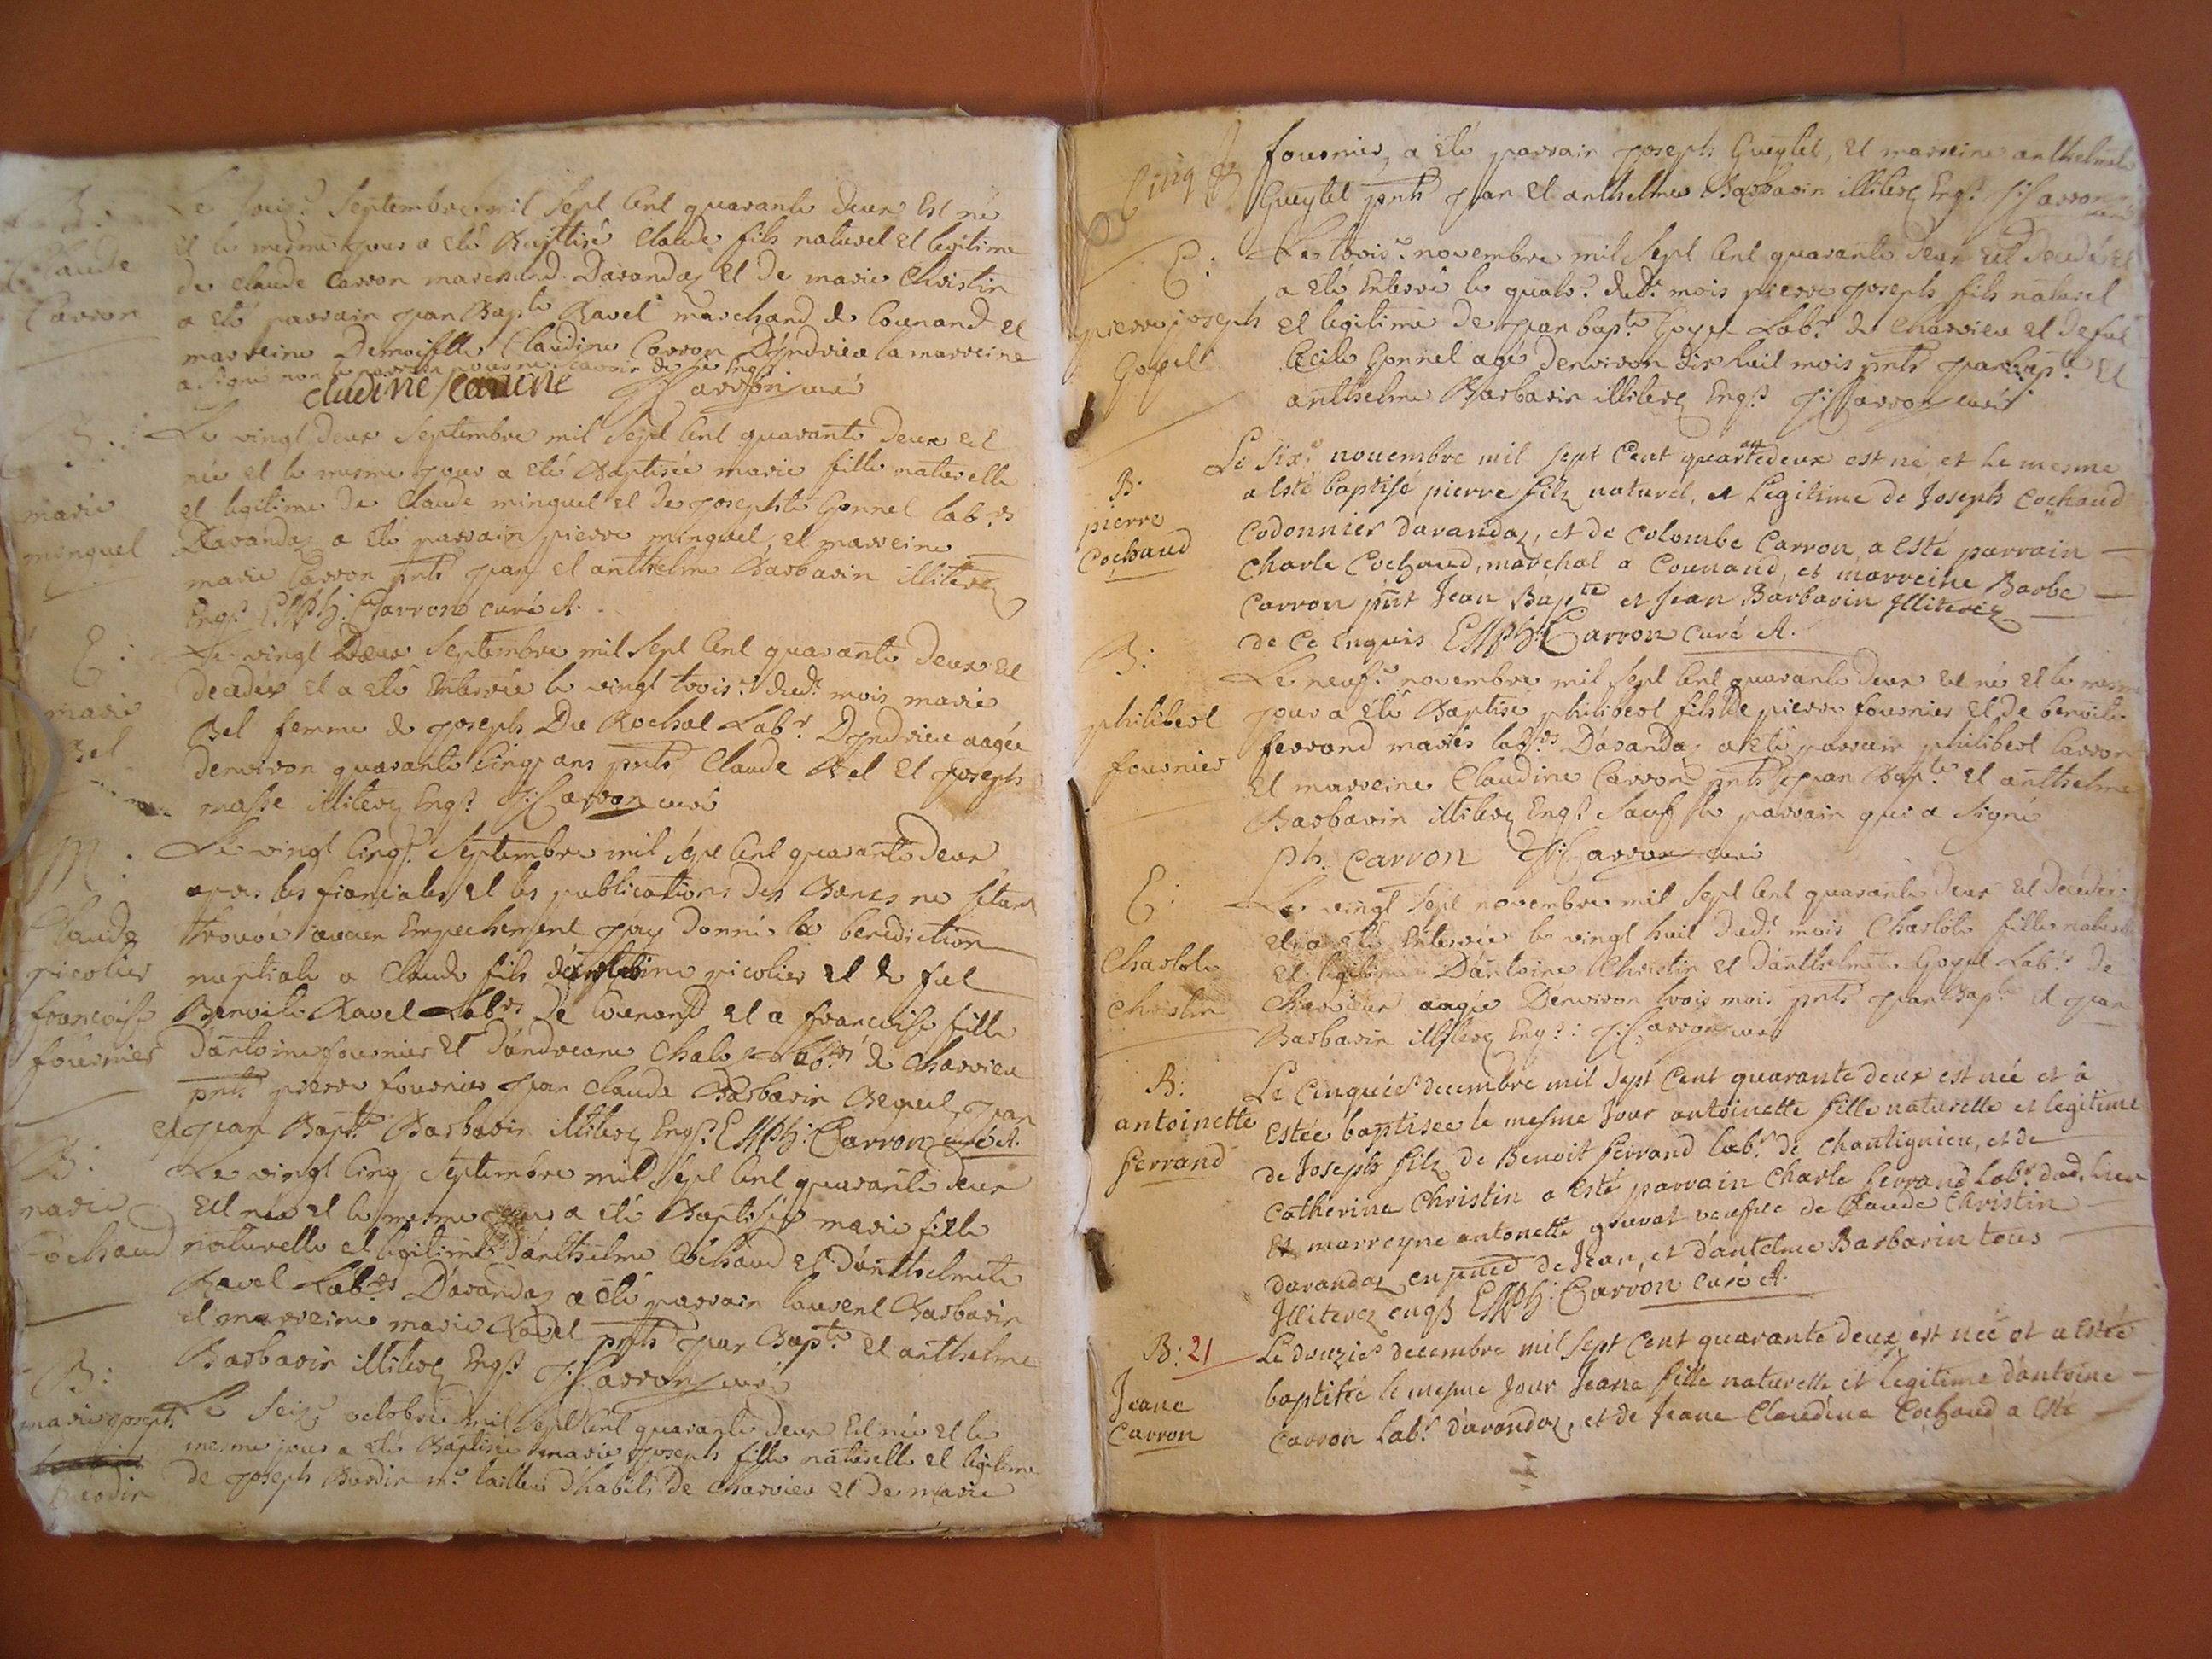 B:
Claude
Carron
Le seiz.e Septembre mil sept Cent quarante deux Est né
Et le mesme jour a eté Baptisé Claude fils naturel et legitime
de Claude Carron marchand Davandaz et de marie Christin
a eté parrain jean Bapte Ravel marchand de Counand et
marreine Demoiselle Claudine Carron Dyndrieu la marreine
a signé non le parrain pour ne scavoir de ce Enqs
cludine caront JCarron curé
B:
marie
minguel
Le vingt deux Septembre mil sept Cent quarante deux est
née et le mesme jour a eté Baptisée marie fille naturelle
et legitime de Claude minguel et de josephte Gonnel labrs
Davandaz a eté parrain pierre minguel, et marreine
marie Carron pnts jean et anthelme Barbarin illiterez
Enqs EMPh: Carron curé A.
E:
marie
Bel
Le vingt Deux Septembre mil sept Cent quarante deux est
decedée et a eté Enterrée le vingt trois.e dudt mois marie
Bel femme de joseph Du Rochat Labr Dyndrieu aagée
denviron quarante Cinq ans pnts Claude Bel et joseph
masse illiterez Enqs JCarron curé
M:
Claude
picolier
francoise
fournier
Le vingt Cinq.e Septembre mil sept Cent quarante deux
apres les fiancailes et les publications des Bancs ne setant
trouvé aucun Empechement j'ay Donné la benediction
nuptiale a Claude fils d'anthelme picolier et de fut
Benoite Ravel Labrs de Counand et a francoise fille
d'antoine fournier et d'andreane Chaley Labrs de Charvieu
pnts pierre fournier jean Claude Barbarin Bequet, jean
et jean Bapte Barbarin illiterez Enqs. EMPh: Carron curé A.
B:
marie
Cochaud
Le vingt Cinq Septembre mil Sept Cent quarante deux
est née et le mesme jour a eté Baptisée marie fille
naturelle et legitime d'anthelme Cochaud et d'anthelmete
Ravel Labrs Davandaz a eté parrain laurent Barbarin
et marreine marie Ravel pnts jean Bapte et anthelme
Barbarin illiterez Enqs JCarron curé
B:
marie joseph
Burdin
Le Seiz.e octobre mil Sept Cent quarante deux est née et le
mesme jour a eté Baptisée marie joseph fille naturelle et legitime
de joseph Burdin me tailleur d'habits de Charvieu et de marie
Cinq
fournier, a eté parrain joseph Gueytet, et marreine anthelmete
Gueytet pnts jean et anthelme Barbarin illiterez Enqs JCarron
curé
E:
pierre joseph
Goyet
Le trois.e novembre mil sept Cent quarante deux est decedé et
a eté Enterré le quatr.e dudt mois pierre joseph fils naturel
et legitime de jean bapte Goyet Labr de Charvieu et de fut
Cecile Gonnel agé denviron dix huit mois pnts jean bapte et
anthelme Barbarin illiterez Enqs JCarron curé
B:
pierre
Cochaud
Le Six.e nouembre mil sept Cent quartedeux est né et le mesme
an
a Esté baptisé pierre filz naturel, et Legitime de Joseph Cochaud
Codonnier davandaz, et de Colombe Carron a Esté parrain
Charle Cochaud, maréchal a Counand, et marreine Barbe
Carron pnt Jean Bapte et Jean Barbarin Illiterez
de Ce enquis EMPh: Carron curé A.
B:
philibert
fournier
Le neuf.e novembre mil sept Cent quarante deux est né et le mesme
jour a eté Baptisé philibert fils De pierre fournier et de benoite
ferrand mariés labrs Davandaz a eté parrain philibert Carron
et marreine Claudine Carron pnts jean Bapte et anthelme
Barbarin illiterez Enqs Sauf le parrain qui a Signé
ph. Carron JCarron curé
E:
Charlote
Christin
Le vingt Sept novembre mil Sept Cent quarante deux est decedée
et a eté Enterrée le vingt huit dudt mois Charlote fille naturelle
et legitime D'antoine Christin et d'anthelmete Goyet Labrs de
Charvieu aagée D'environ trois mois pnts jean Bapte et jean
Barbarin illiterez Enqs: JCarron curé
B:
antoinette
ferrand
Le Cinquie.e decembre mil sept Cent quarante deux est née et à
Estée baptisee le mesme Jour antoinette fille naturelle et legitime
de Joseph filz de Benoit ferrand labr. de Chantignieu, et de
Catherine Christin a Esté parrain Charle ferrand labr. dud. lieu
Et marreyne antonette gouvat veufue de Claude Christin
davandaz en pnce de Jean, et d'antelme Barbarin tous
Illiterez enqs EMPh: Carron curé A.
B: 21
Jeane
Carron
Le douzie.e decembre mil sept Cent quarante deux est née et a Estée
baptisée le mesme Jour Jeane fille naturelle et legitime d'antoine
Carron labr. d'avandaz, et de Jeane Claudine Cochaud a Esté